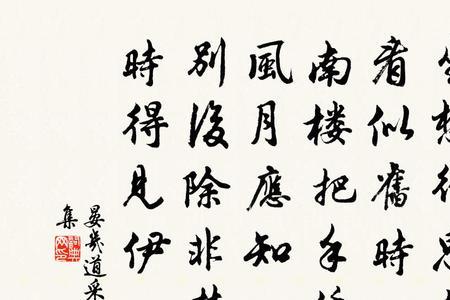 看似舊時
南楼把手
風月應知
別後除非
時得見伊
晏幾道采
集